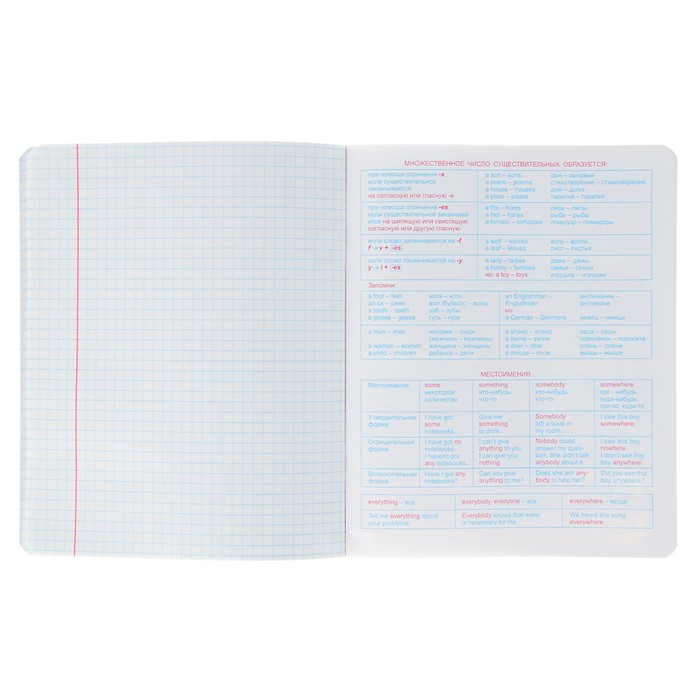 МНОЖЕСТВЕННОЕ ЧИСЛО СУЩЕСТВИТЕЛЬНЫХ ОБРАЗУЕТСЯ:
при помощи окончания -s,
если существительное
заканчивается
на согласную или гласную -е
a son – sons
a poem – poems
a house – houses
a plate – plates
сын – сыновья
стихотворение – стихотворения
дом – дома
тарелка – тарелки
при помощи окончания -es,
если существительное заканчива-
ется на шипящую или свистящую
согласную или другую гласную
a fox – foxes
a fish – fishes
a tomato – tomatoes
лиса – лисы
рыба – рыбы
помидор – помидоры
если слово заканчивается на -f,
f → v + -es
a wolf – wolves
a leaf – leaves
волк – волки
лист – листья
если слово заканчивается на -y,
y → i + -es
a lady – ladies
a family – families
но: a toy – toys
дама – дамы
семья – семьи
игрушка – игрушки
Запомни:
a foot – feet
an ox – oxen
a tooth – teeth
a goose – geese
нога – ноги
вол (буйвол) – волы
зуб – зубы
гусь – гуси
an Englishman –
Englishmen
но:
a German – Germans
англичанин –
англичане
немец – немцы
a man – men
a woman – women
a child – children
человек – люди
(мужчина – мужчины)
женщина – женщины
ребёнок – дети
a sheep – sheep
a swine – swine
a deer – deer
a mouse – mice
овца – овцы
поросёнок – поросята
олень – олени
мышь – мыши
МЕСТОИМЕНИЯ
Местоимение
some
некоторое
количество
something
что-нибудь,
что-то
somebody
кто-нибудь,
кто-то
somewhere
где - нибудь,
куда-нибудь,
где-то, куда-то
Утвердительная
форма
I have got
some
notebooks.
Give me
something
to drink.
Somebody
left a book in
my room.
I saw this boy
somewhere.
Отрицательная
форма
I have got no
notebooks.
I haven't got
any notebooks.
I can't give
anything to you.
I can give you
nothing.
Nobody could
answer my ques-
tion. She didn't talk
anybody about it.
I saw this boy
nowhere.
I didn't see this
boy anywhere.
Вопросительная
форма
Have I got any
notebooks?
Can you give
anything to me?
Does she ask any-
body to help her?
Did you see this
boy anywhere?
everything – всё
everybody, everyone – все
everywhere – везде
Tell me everything about
your problems.
Everybody knows that water
is necessary for life.
We heard this song
everywhere.